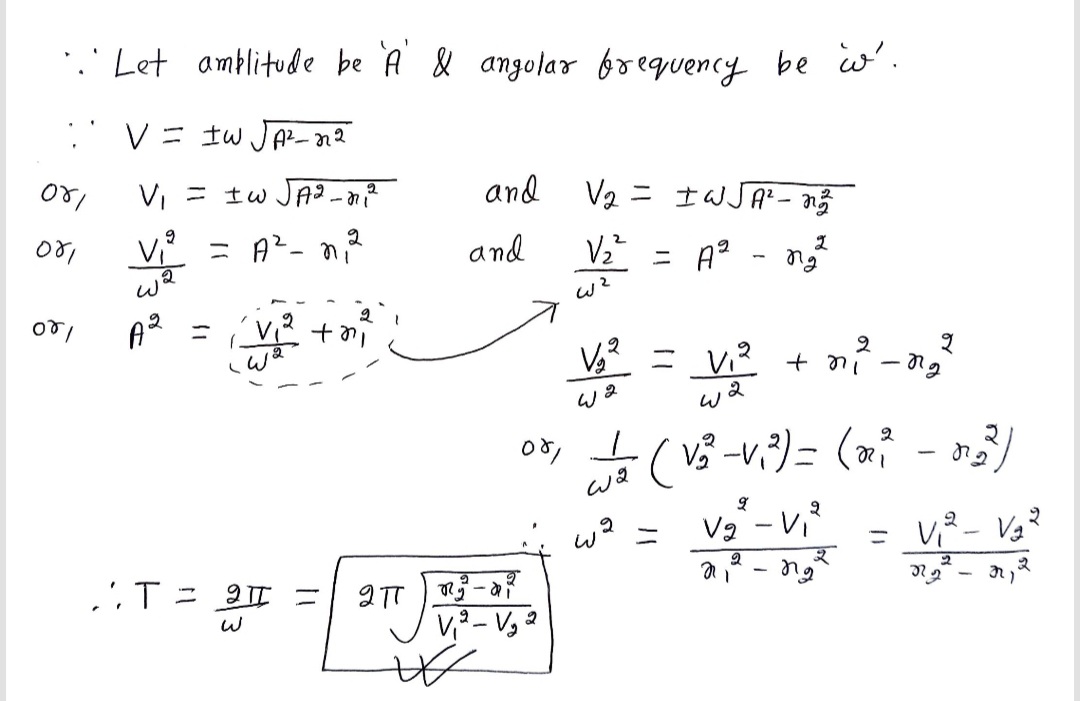 ∵ Let amplitude be 'A' & angular frequency be 'ω'.
∵ V = ±ω √(A² − x²)
or, V₁ = ±ω √(A² − x₁²) and V₂ = ±ω √(A² − x₂²)
or, V₁²/ω² = A² − x₁² and V₂²/ω² = A² − x₂²
or, A² = V₁²/ω² + x₁²
V₂²/ω² = V₁²/ω² + x₁² − x₂²
or, 1/ω² (V₂² − V₁²) = (x₁² − x₂²)
∴ ω² = (V₂² − V₁²)/(x₁² − x₂²) = (V₁² − V₂²)/(x₂² − x₁²)
∴ T = 2π/ω = 2π √((x₂² − x₁²)/(V₁² − V₂²))